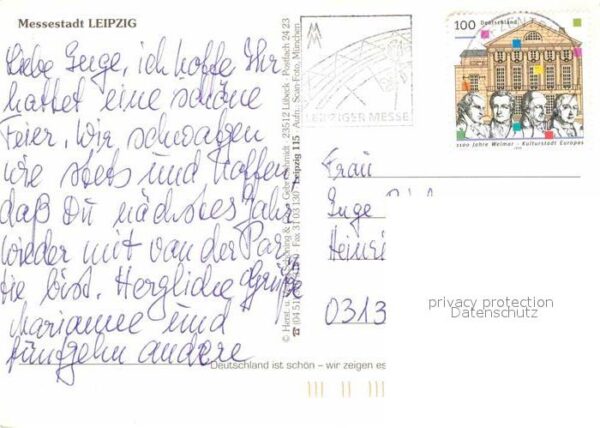 Messestadt LEIPZIG
Liebe Inge, ich hoffe Ihr
hattet eine schöne
Feier. Wir schwatzen
wie stets und hoffen
daß Du nächstes Jahr
wieder mit von der Par-
tie bist. Herzliche Grüße
Marianne und
fünfzehn andere
23512 Lübeck · Postfach 24 23
Leipzig 115 Aufn.: Scan-Foto, München
LEIPZIGER MESSE
100 Deutschland
1100 Jahre Weimar - Kulturstadt Europas
Frau
Inge
Heinri
0313
privacy protection
Datenschutz
Deutschland ist schön – wir zeigen es